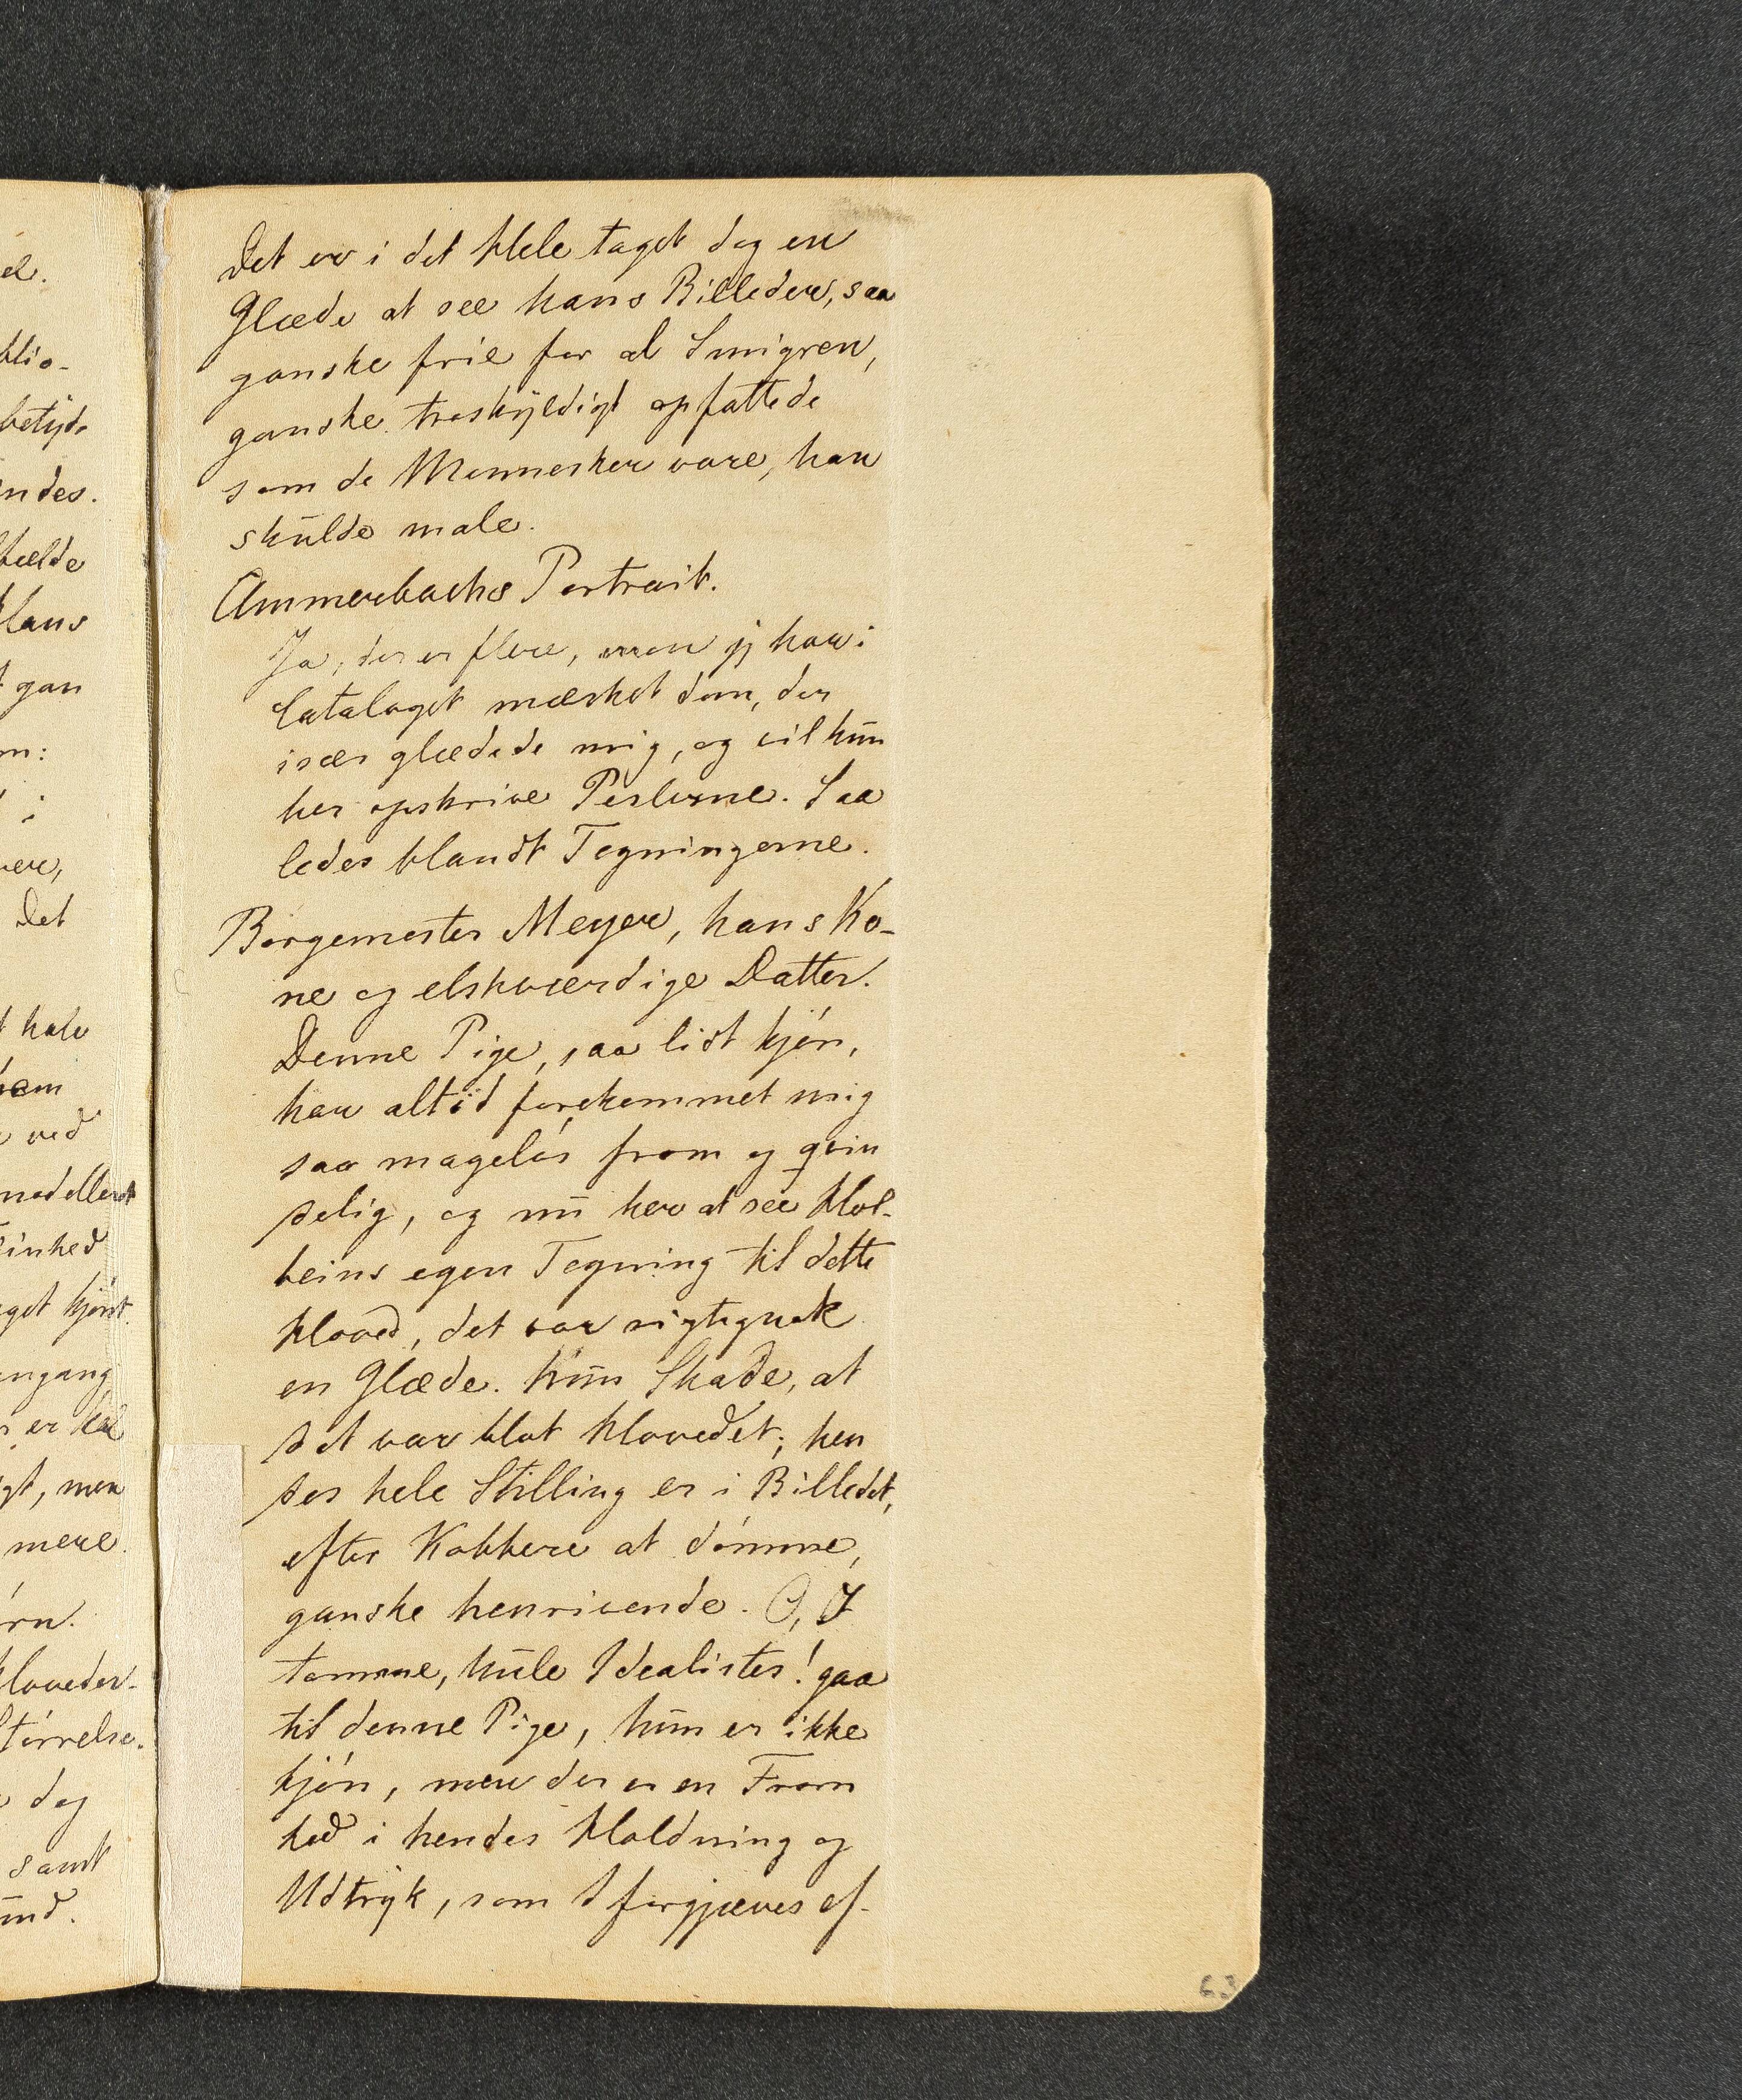 Det er i det Hele taget dog en
Glæde at see hans Billeder, saa
ganske frie for al Smigren,
ganske troskyldigt opfattede
som de Mennesker vare, han
skulde male.
Ammerbachs Portrait.
Ja, der er flere, men jeg har i
Cataloget mærket dem, der
især glædede mig, og vil kun
her opskrive Perlerne. Saa
ledes blandt Tegningerne.
Borgemester Meyer, hans Ko-
ne og elskværdige Datter.
Denne Pige, saa lidt kjön,
har altid forekommet mig
saa magelös from og qvin
delig, og nu her at see Hol-
beins egen Tegning til dette
Hoved, det var rigtignok
en Glæde. Kun Skade, at
det var blot Hovedet; hen
des hele Stilling er i Billedet,
efter Kobbere at dömme,
ganske henrivende. O, I
tomme, hule Idealister! gaa
til denne Pige, hun er ikke
kjön, men der er en From
hed i hendes Holdning og
Udtryk, som I forgjæves ef-
63
el.
blio-
betyde
indes.
Hans
gan
m:
i
vere,
Det
hele
ved
modelleret
inhed
get kjönt.
engang
er
gt, men
mere.
örn.
Hoveder.
Störrelse.
dog
samt
und.